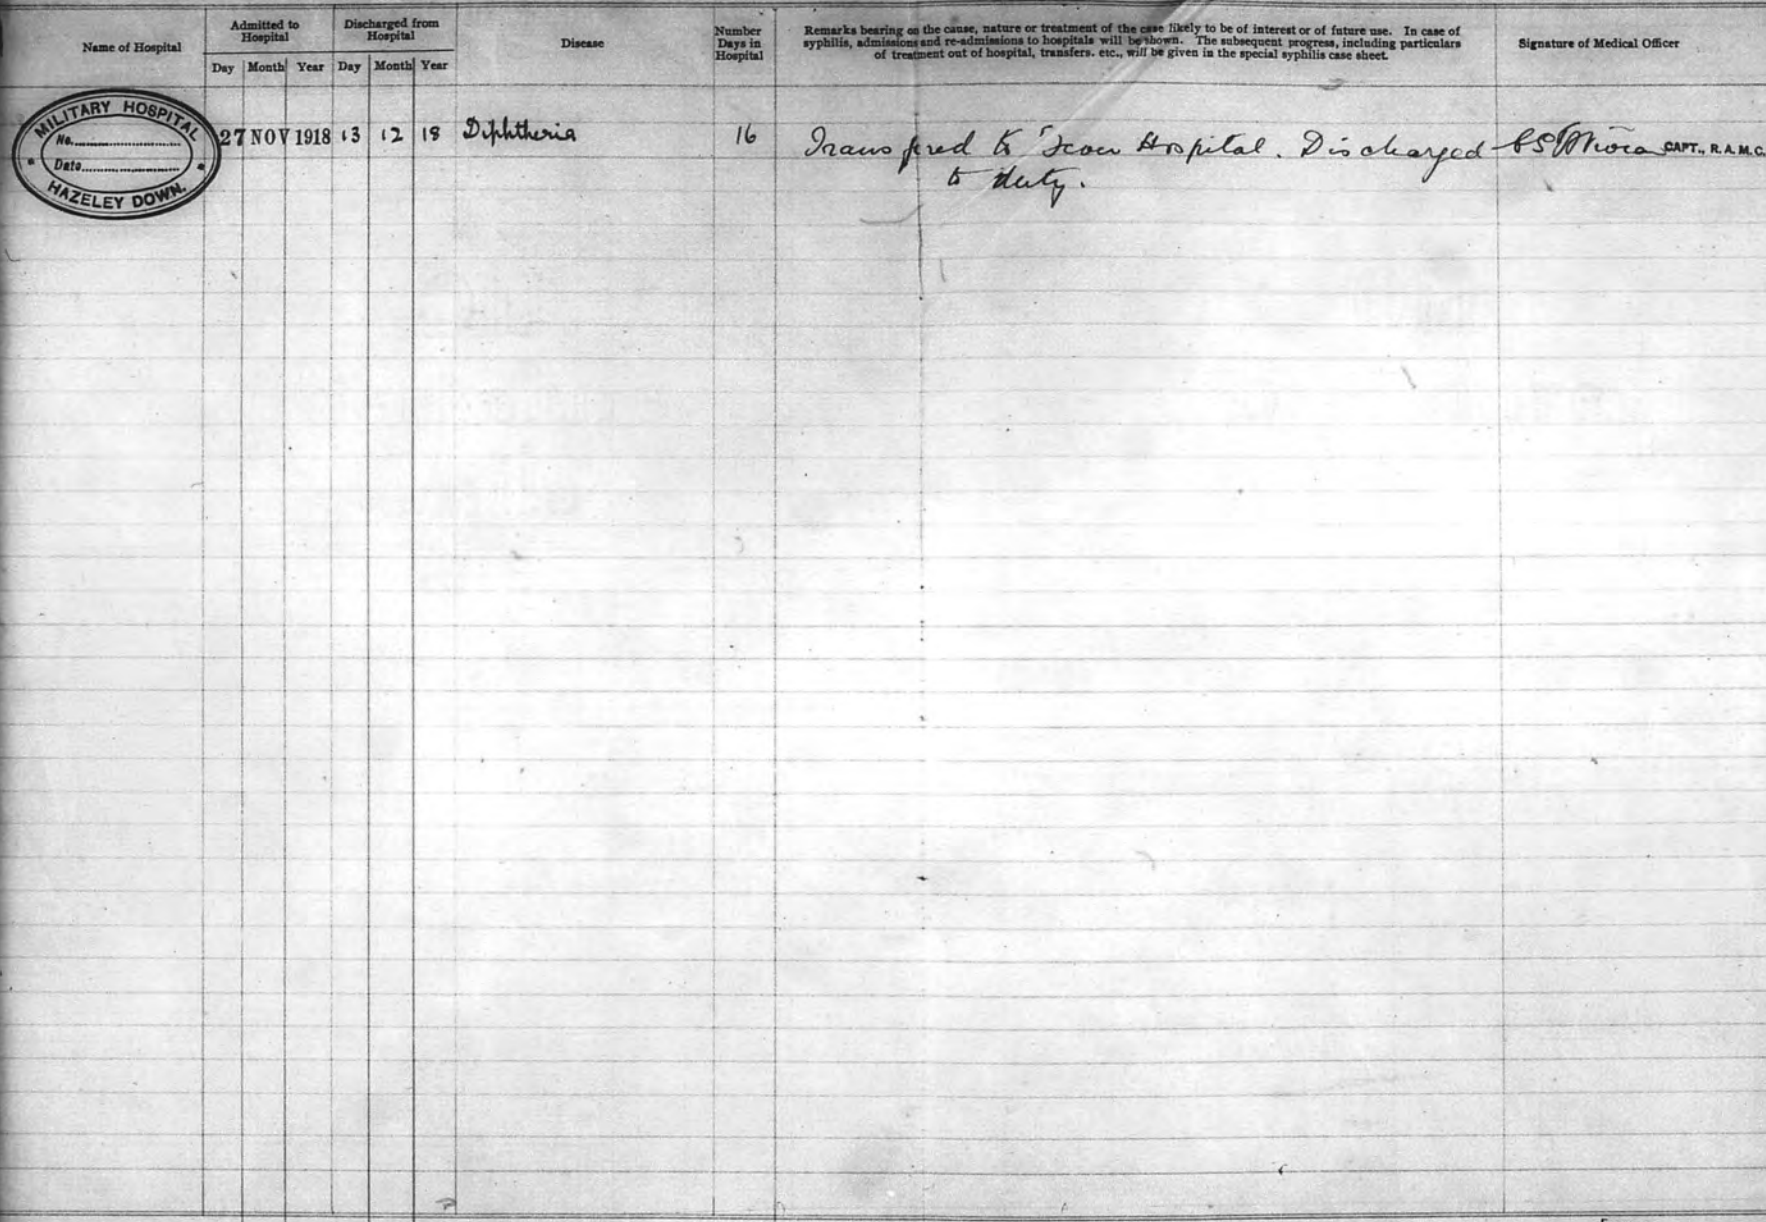 Name of Hospital
Admitted to
Hospital
Discharged from
Hospital
Disease
Number
Days in
Hospital
Remarks bearing on the cause, nature or treatment of the case likely to be of interest or of future use. In case of
syphilis, admissions and re-admissions to hospitals will be shown. The subsequent progress, including particulars
of treatment out of hospital, transfers. etc., will be given in the special syphilis case sheet.
Signature of Medical Officer
Day Month Year Day Month Year
MILITARY HOSPITAL
No.
Date
HAZELEY DOWN.
27 NOV 1918 13 12 18 Diphtheria 16 Transfered to Hospital. Discharged CAPT., R.A.M.C.
to duty.